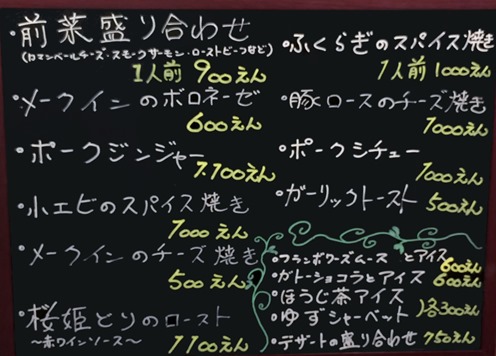 ・前菜盛り合わせ
(カマンベールチーズ・スモークサーモン・ローストビーフなど)
1人前 900えん
・メークインのボロネーゼ
600えん
・ポークジンジャー
1.100えん
・小エビのスパイス焼き
1000えん
・メークインのチーズ焼き
500えん
・桜姫どりのロースト
〜赤ワインソース〜
1100えん
・ふくらぎのスパイス焼き
1人前 1000えん
・豚ロースのチーズ焼き
1000えん
・ポークシチュー
1000えん
・ガーリックトースト 500えん
・フランボワーズムースとアイス 600えん
・ガトーショコラとアイス 600えん
・ほうじ茶アイス
・ゆずシャーベット 各300えん
・デザートの盛り合わせ 750えん